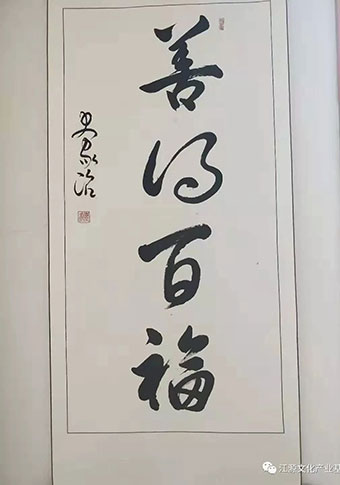 善得百福
江源文化产业基